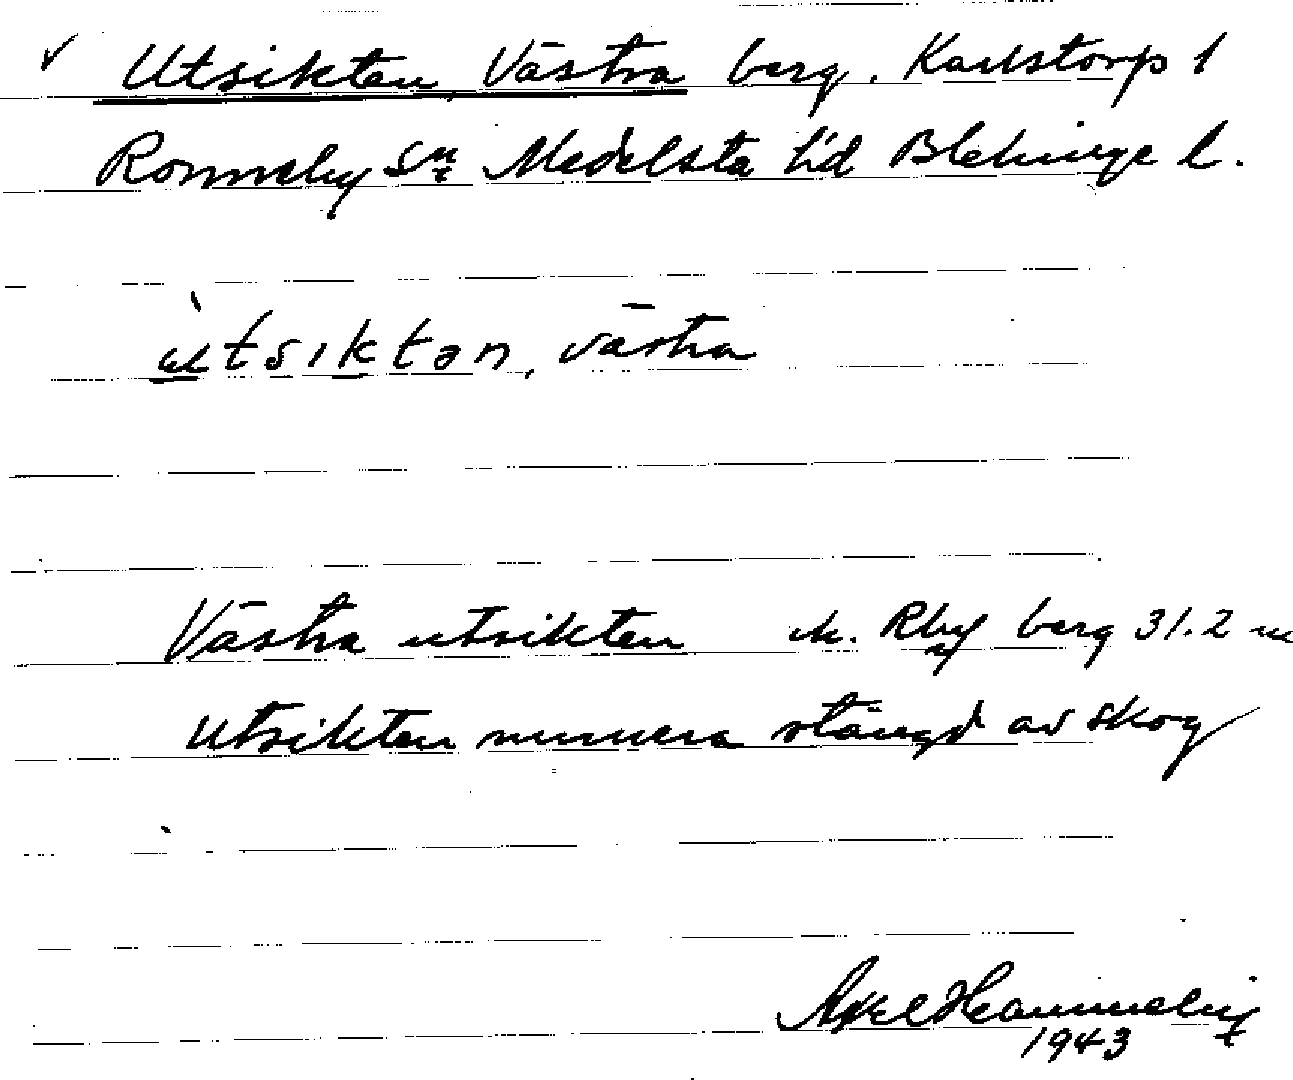 ✓ Utsikten, Västra berg. Karlstorp 1
Ronneby sn Medelsta hd Blekinge l.
ùtsiktən, västra
Västra utsikten Rby berg 31.2 m
utsikten numera stängd av skog
Axel
1943